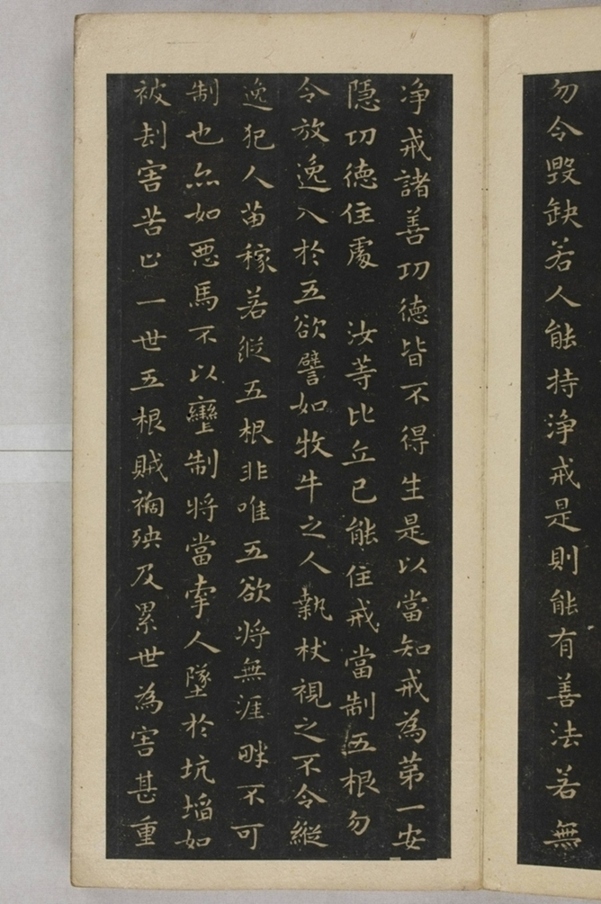 勿令毀缺若人能持淨戒是則能有善法若無
淨戒諸善功德皆不得生是以當知戒為第一安
隱功德住處 汝等比丘已能住戒當制五根勿
令放逸入於五欲譬如牧牛之人執杖視之不令縱
逸犯人苗稼若縱五根非唯五欲将無涯畔不可
制也亦如惡馬不以轡制将當牽人墜於坑埳如
被刦害苦止一世五根賊禍殃及累世為害甚重